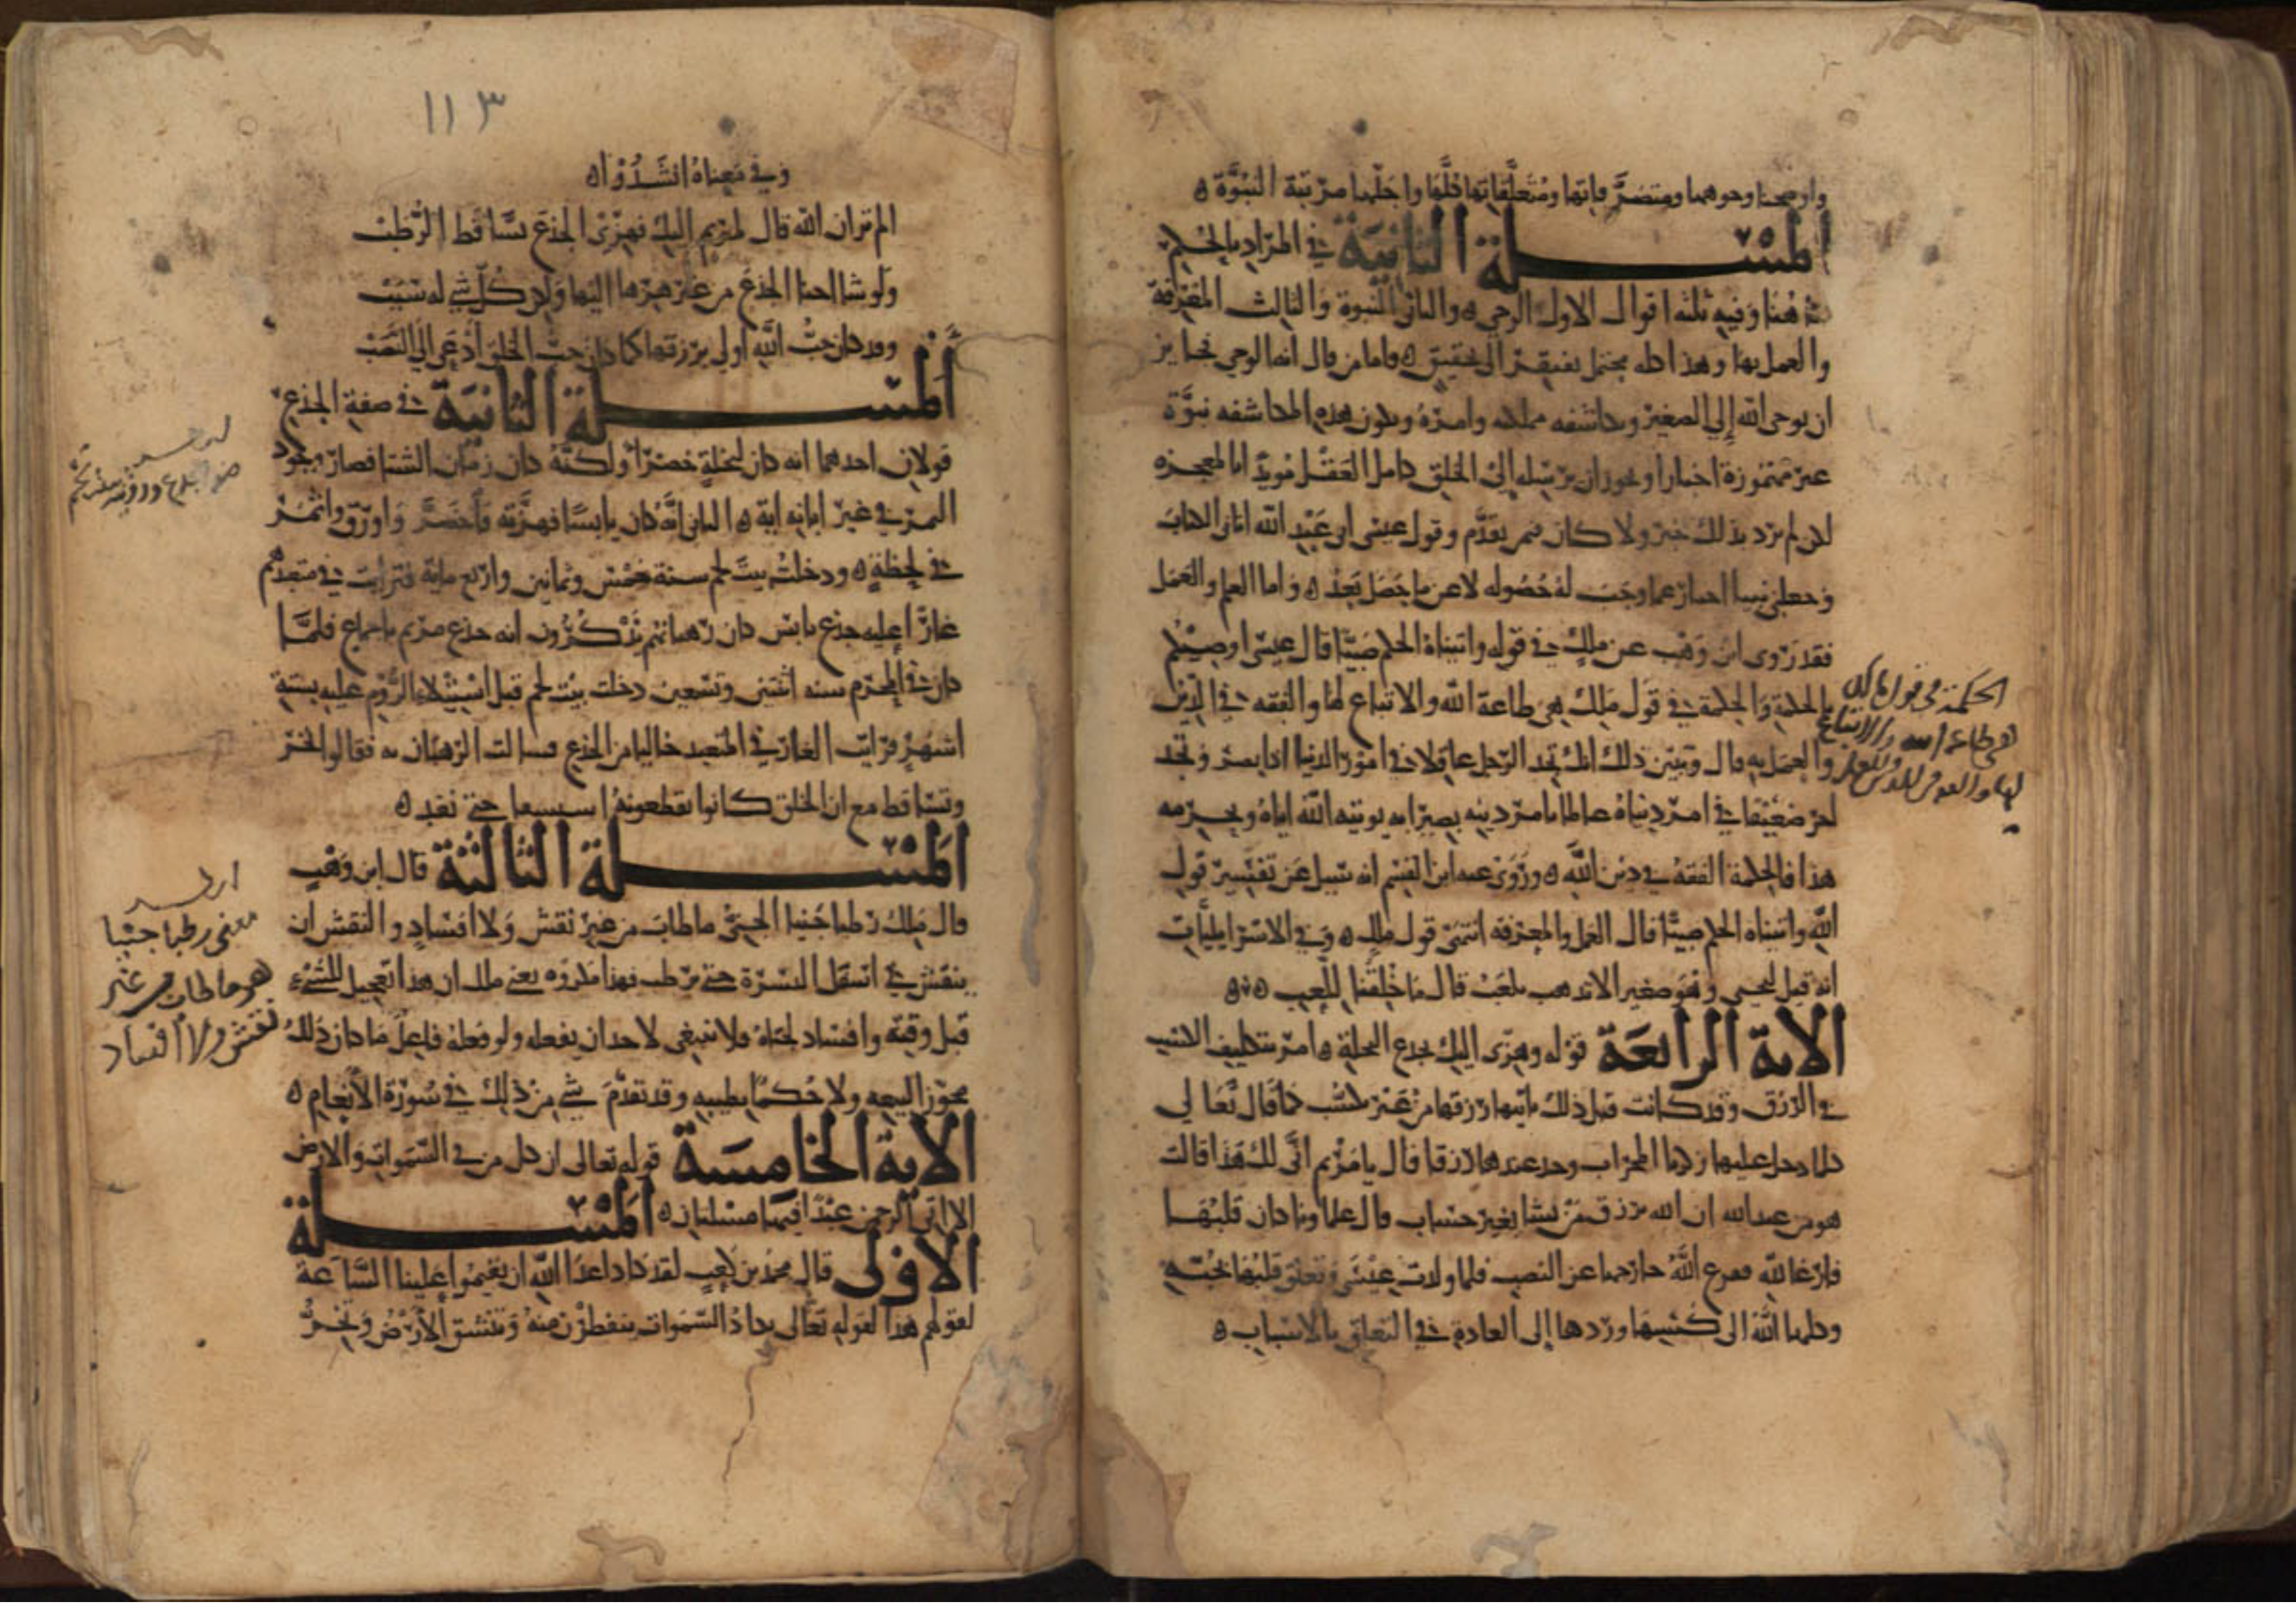 واوضحنا وجوهها ومتصرفاتها ومتعلقاتها كلها واجلها مرتبة النبوة ه
المسلة الثانية في المراد بالحكم
هاهنا وفيه ثلثة اقوال الاول الوحي ه والثاني النبوة والثالث المعرفة
والعمل بها وهذا كله محتمل يفتقر الى تحقيق ه فاما من قال انه الوحي فجايز
ان يوحى الله إلي الصغير ويكاشفه بملائكته وامره وتكون هذه المكاشفة نبوة
غير مهموزة اخبارا ويجوز ان يرسله إلى الخلق كامل العقل مويدا بالمعجزه
لكن لم يرد بذلك خبر ولا كان فيمن تقدم وقول عيسى اني عبد الله اتاني الكتاب
وجعلني نبيا اخبار عما وجب له حصوله لا عن ما حصل بعد ه واما العلم والعمل
فقد روى ابن وهب عن ملك في قوله واتيناه الحكم صبيا قال عيسى اوصيكم
بالحكمة والحكمة في قول ملك هي طاعة الله والاتباع لها والفقه في الدين
والعمل به قال ويبين ذلك انك تجد الرجل عاقلا في امور الدنيا اذا بصر وتجد
اخر ضعيفا في امر دنياه عالما بامر دينه بصيرا به يوتيه الله اياه ويحرمه
هذا فالحكمة الفقه في دين الله ه وروى عنه ابن القسم انه سيل عن تفسير قول
الله واتيناه الحكم صبيا قال العمل والمعرفه انتهى قول ملك ه وفي الاسرايليات
انه قيل ليحيى وهو صغير الا تذهب نلعب قال ما خلقنا للعب ه ه
الاية الرابعة قوله وهزى اليك بجذع النخلة ه امر بتكليف الكسب
في الرزق وقد كانت قبل ذلك ياتيها رزقها من غير كسب كما قال تعالي
كلما دخل عليها زكريا المحراب وجد عندها رزقا قال يا مريم انى لك هذا قالت
هو من عند الله ان الله يرزق من يشا بغير حساب قال علماونا كان قلبها
فارغا لله ففرغ الله جارحها عن النصب فلما ولدت عيسى وتعلق قلبها بحبه
وكلها الله الى كسبها وردها إلى العادة في التعلق بالاسباب ه
الحكمة في قول مالك
هي طاعة الله والاتباع
لها والفقه في الدين والعمل
به
١١٣
وفي معناه انشدوا ه
الم تر ان الله قال لمريم إليك فهزى الجذع يساقط الرطب
ولو شا احنا الجذع من غير هزها اليها ولكن كل شي له سبب
وقد كان حب الله اولى برزقها كما كان حب الخلق ادعى الي النصب
المسلة الثانية في صفة الجذع
قولان احدهما انه كان لنخلة خضرا ولكنه كان زمان الشتا فصار وجود
التمر في غير ابانه اية ه الثاني انه كان يابسا فهزته فاخضر واورق واثمر
في لحظة ه ودخلت بيت لحم سنة خمس وثمانين واربع ماية فرايت في متعبدهم
غارا عليه جذع يابس كان رهبانهم يذكرون انه جذع مريم باجماع فلما
كان في المحرم سنه اثنتين وتسعين دخلت بيت لحم قبل استيلاء الروم عليه بستة
اشهر فرايت الغار في المتعبد خاليا من الجذع فسالت الرهبان به فقالوا نخر
وتساقط مع ان الخلق كانوا يقطعونه استشفا حتى نفد ه
المسلة الثالثة قال ابن وهب
قال ملك رطبا جنيا الجني ما طاب من غير نقش ولا افساد والنقش ان
ينقش في اسفل البسرة حتى ترطب فهذا مكروه يعني ملك ان هذا تعجيل للشيء
قبل وقته وافساد لجناه فلا ينبغى لاحد ان يفعله ولو فعله فاعل ما كان ذلك
مجوزا لبيعه ولا حكما بطيبه وقد تقدم شي من ذلك في سورة الانعام ه
الاية الخامسة قوله تعالى ان كل من في السموات والارض
الا اتى الرحمن عبدا فيها مسلتان ه المسلة
الاولى قال محمد بن كعب لقد كاد اعدا الله ان يقيموا علينا الساعة
لقولهم هذا لقوله تعالى يكاد السموات يتفطرن منه وتنشق الارض وتخر
معنى رطبا جنيا
هو ما طاب من غير
نقش ولا افساد